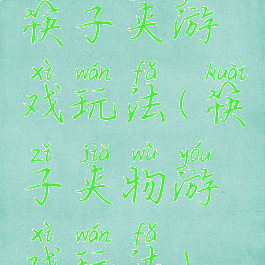 筷子夹游
xì wán fǎ kuài
戏玩法(筷
zǐ jiā wù yóu
子夹物游
xì wán fǎ
戏玩法)